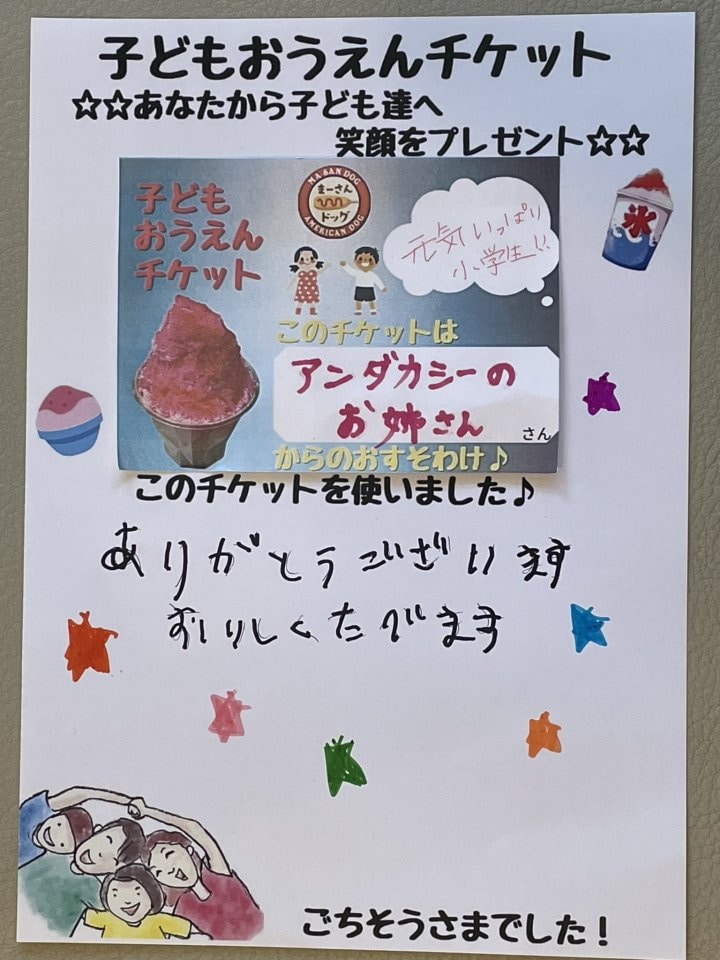 子どもおうえんチケット
☆☆あなたから子ども達へ
笑顔をプレゼント☆☆
子ども
おうえん
チケット
MA SAN DOG
まーさん
ドッグ
AMERICAN DOG
元気いっぱい
小学生!!
氷
このチケットは
アンダカシーの
お姉さん
さん
からのおすそわけ♪
このチケットを使いました♪
ありがとうございます
おいしくたべます
ごちそうさまでした！